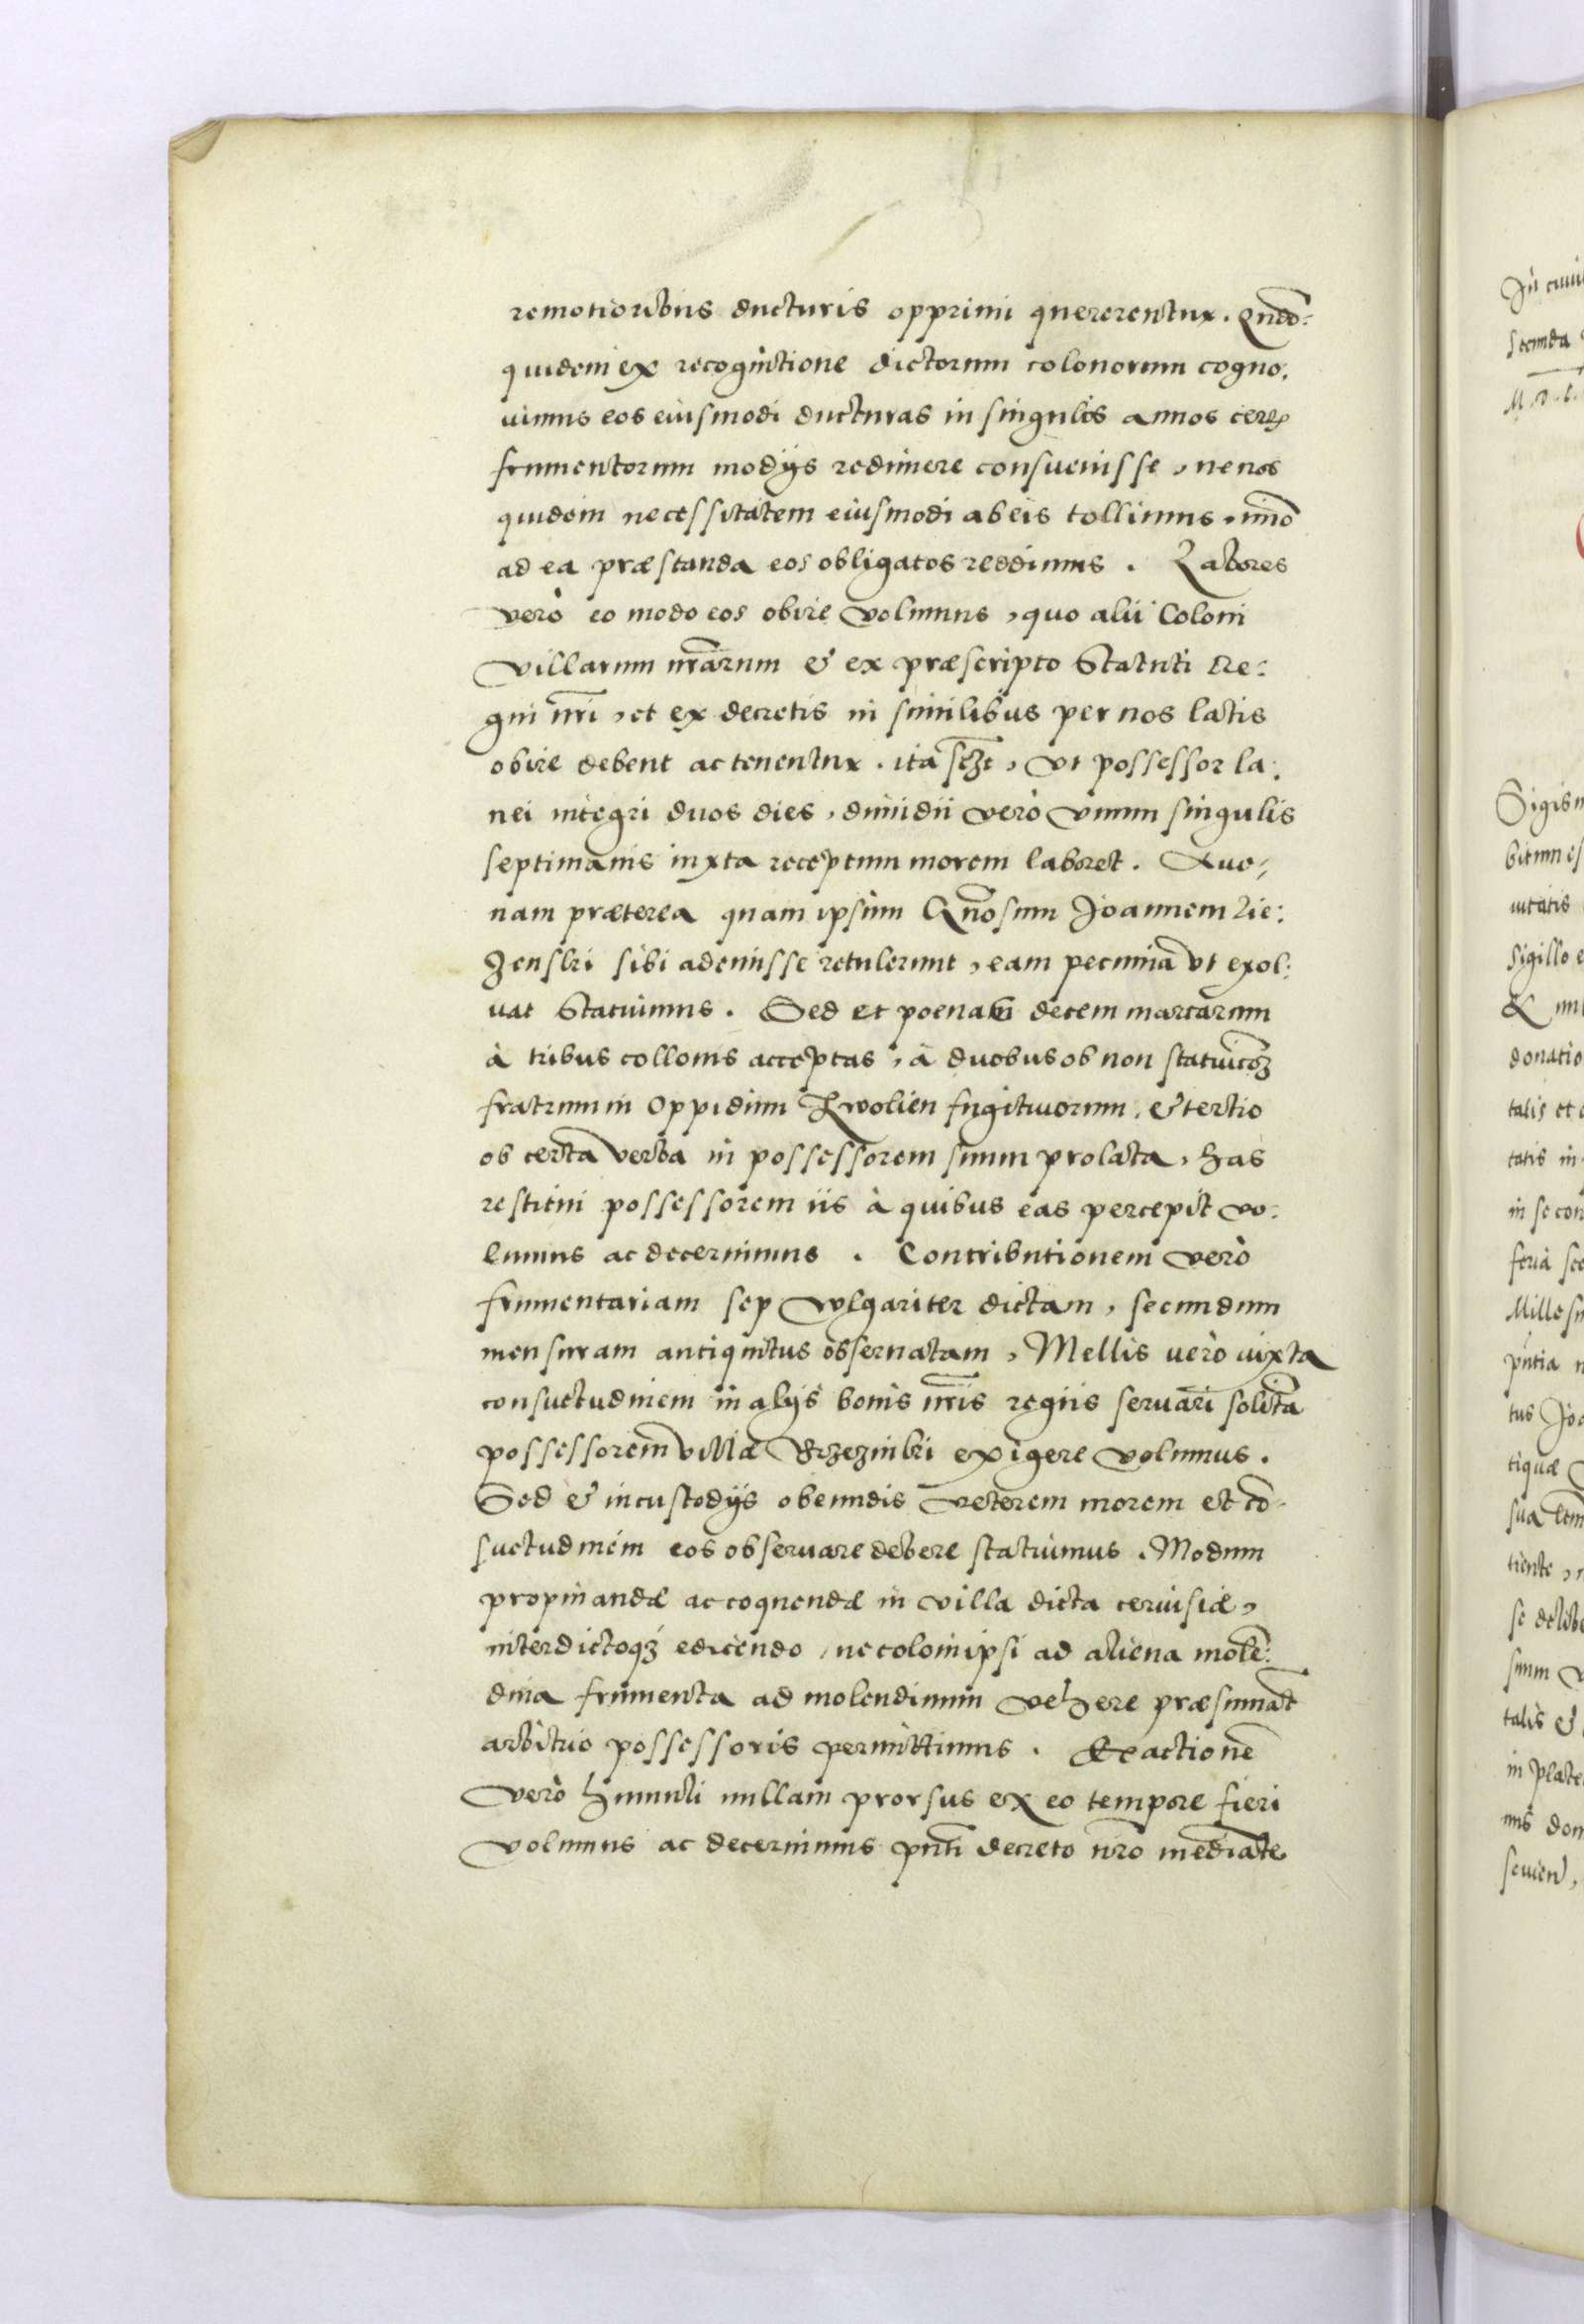 remotioribus ducturis opprimi quererentur. Qñdo:
quidem ex recognitione dictorum colonorum cogno:
uimus eos eiusmodi ducturas in singulos annos certis
frumentorum modijs redimere consueuisse, ne nos
quidem necessitatem eiusmodi ab eis tollimus, imò
ad ea præstanda eos obligatos reddimus. Labores
verò eo modo eos obire volumus, quo alii Coloni
villarum nr̃arum & ex præscripto Statuti Re:
gni nr̃i, et ex decretis in similibus per nos latis
obire debent ac tenentur. ita sczt, vt possessor la:
nei integri duos dies, dimidii verò vnum singulis
septimanis iuxta receptum morem laboret. Aue:
nam præterea quam ipsum Gñosum Joannem Lie:
zenski sibi ademisse retulerunt, eam pecunia vt exol:
uat Statuimus. Sed et poenam decem marcarum
à tribus collonis acceptas, à duobus ob non statuicõz
fratrum in Oppidum Zwolien fugitiuorum, & tertio
ob certa verba in possessorem suum prolata, has
restitui possessorem iis à quibus eas percepit vo:
lumus ac decernimus. Contributionem verò
frumentariam sep vulgariter dictam, secundum
mensuram antiquitus obseruatam, Mellis uerò iuxta
consuetudinem in alijs bonis nr̃is regiis seruari solita
possessorem villæ Brzezinki exigere volumus.
Sed & in custodijs obeundis veterem morem et cõ:
suetudinem eos obseruare debere statuimus. Modum
propinandæ ac coquendæ in villa dicta ceruisiæ,
interdictoq; edicendo, ne coloni ipsi ad aliena molẽ:
dina frumenta ad molendinum vehere præsumãt
arbitrio possessoris permittimus. Exactionẽ
verò humuli nullam prorsus ex eo tempore fieri
volumus ac decernimus pñti decreto nr̃o mediate